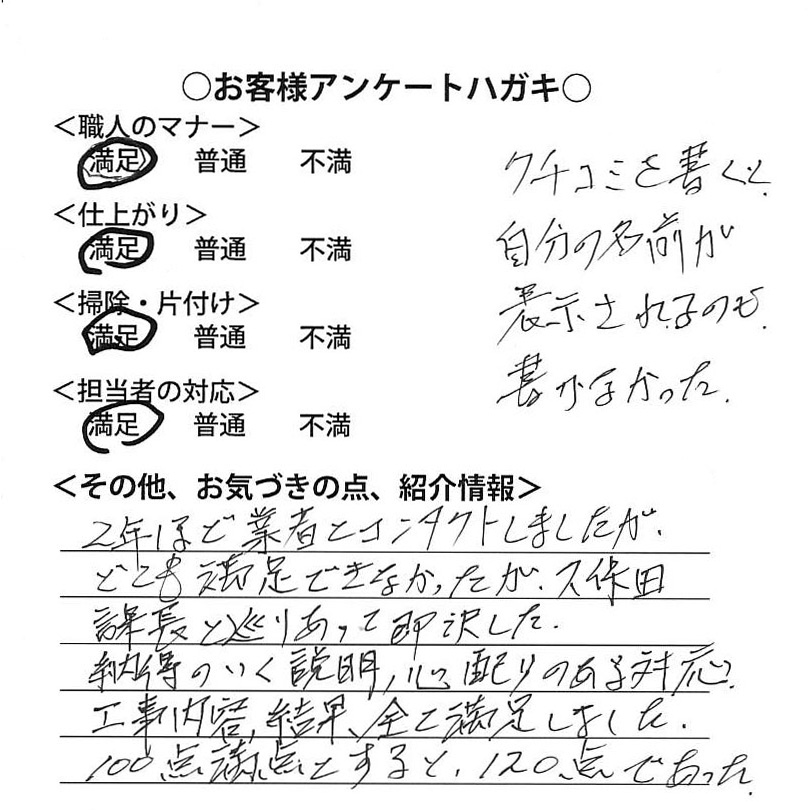 ○お客様アンケートハガキ○
＜職人のマナー＞
満足 普通 不満
＜仕上がり＞
満足 普通 不満
＜掃除・片付け＞
満足 普通 不満
＜担当者の対応＞
満足 普通 不満
クチコミを書くと、
自分の名前が
表示されるので、
書かなかった。
＜その他、お気づきの点、紹介情報＞
2年ほど業者とコンタクトしましたが、
どこも満足できなかったが、久保田
課長と巡りあって即決した。
納得のいく説明、心配りのある対応、
工事内容、結果、全て満足しました。
100点満点とすると、120点であった。